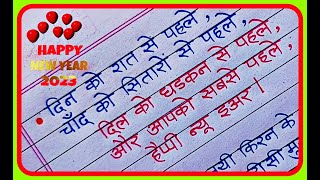 HAPPY
NEW YEAR
2023
दिन को रात से पहले,
चाँद को सितारों से पहले,
दिल को धड़कन से पहले,
और आपको सबसे पहले,
हैप्पी न्यू इअर।
किरन के